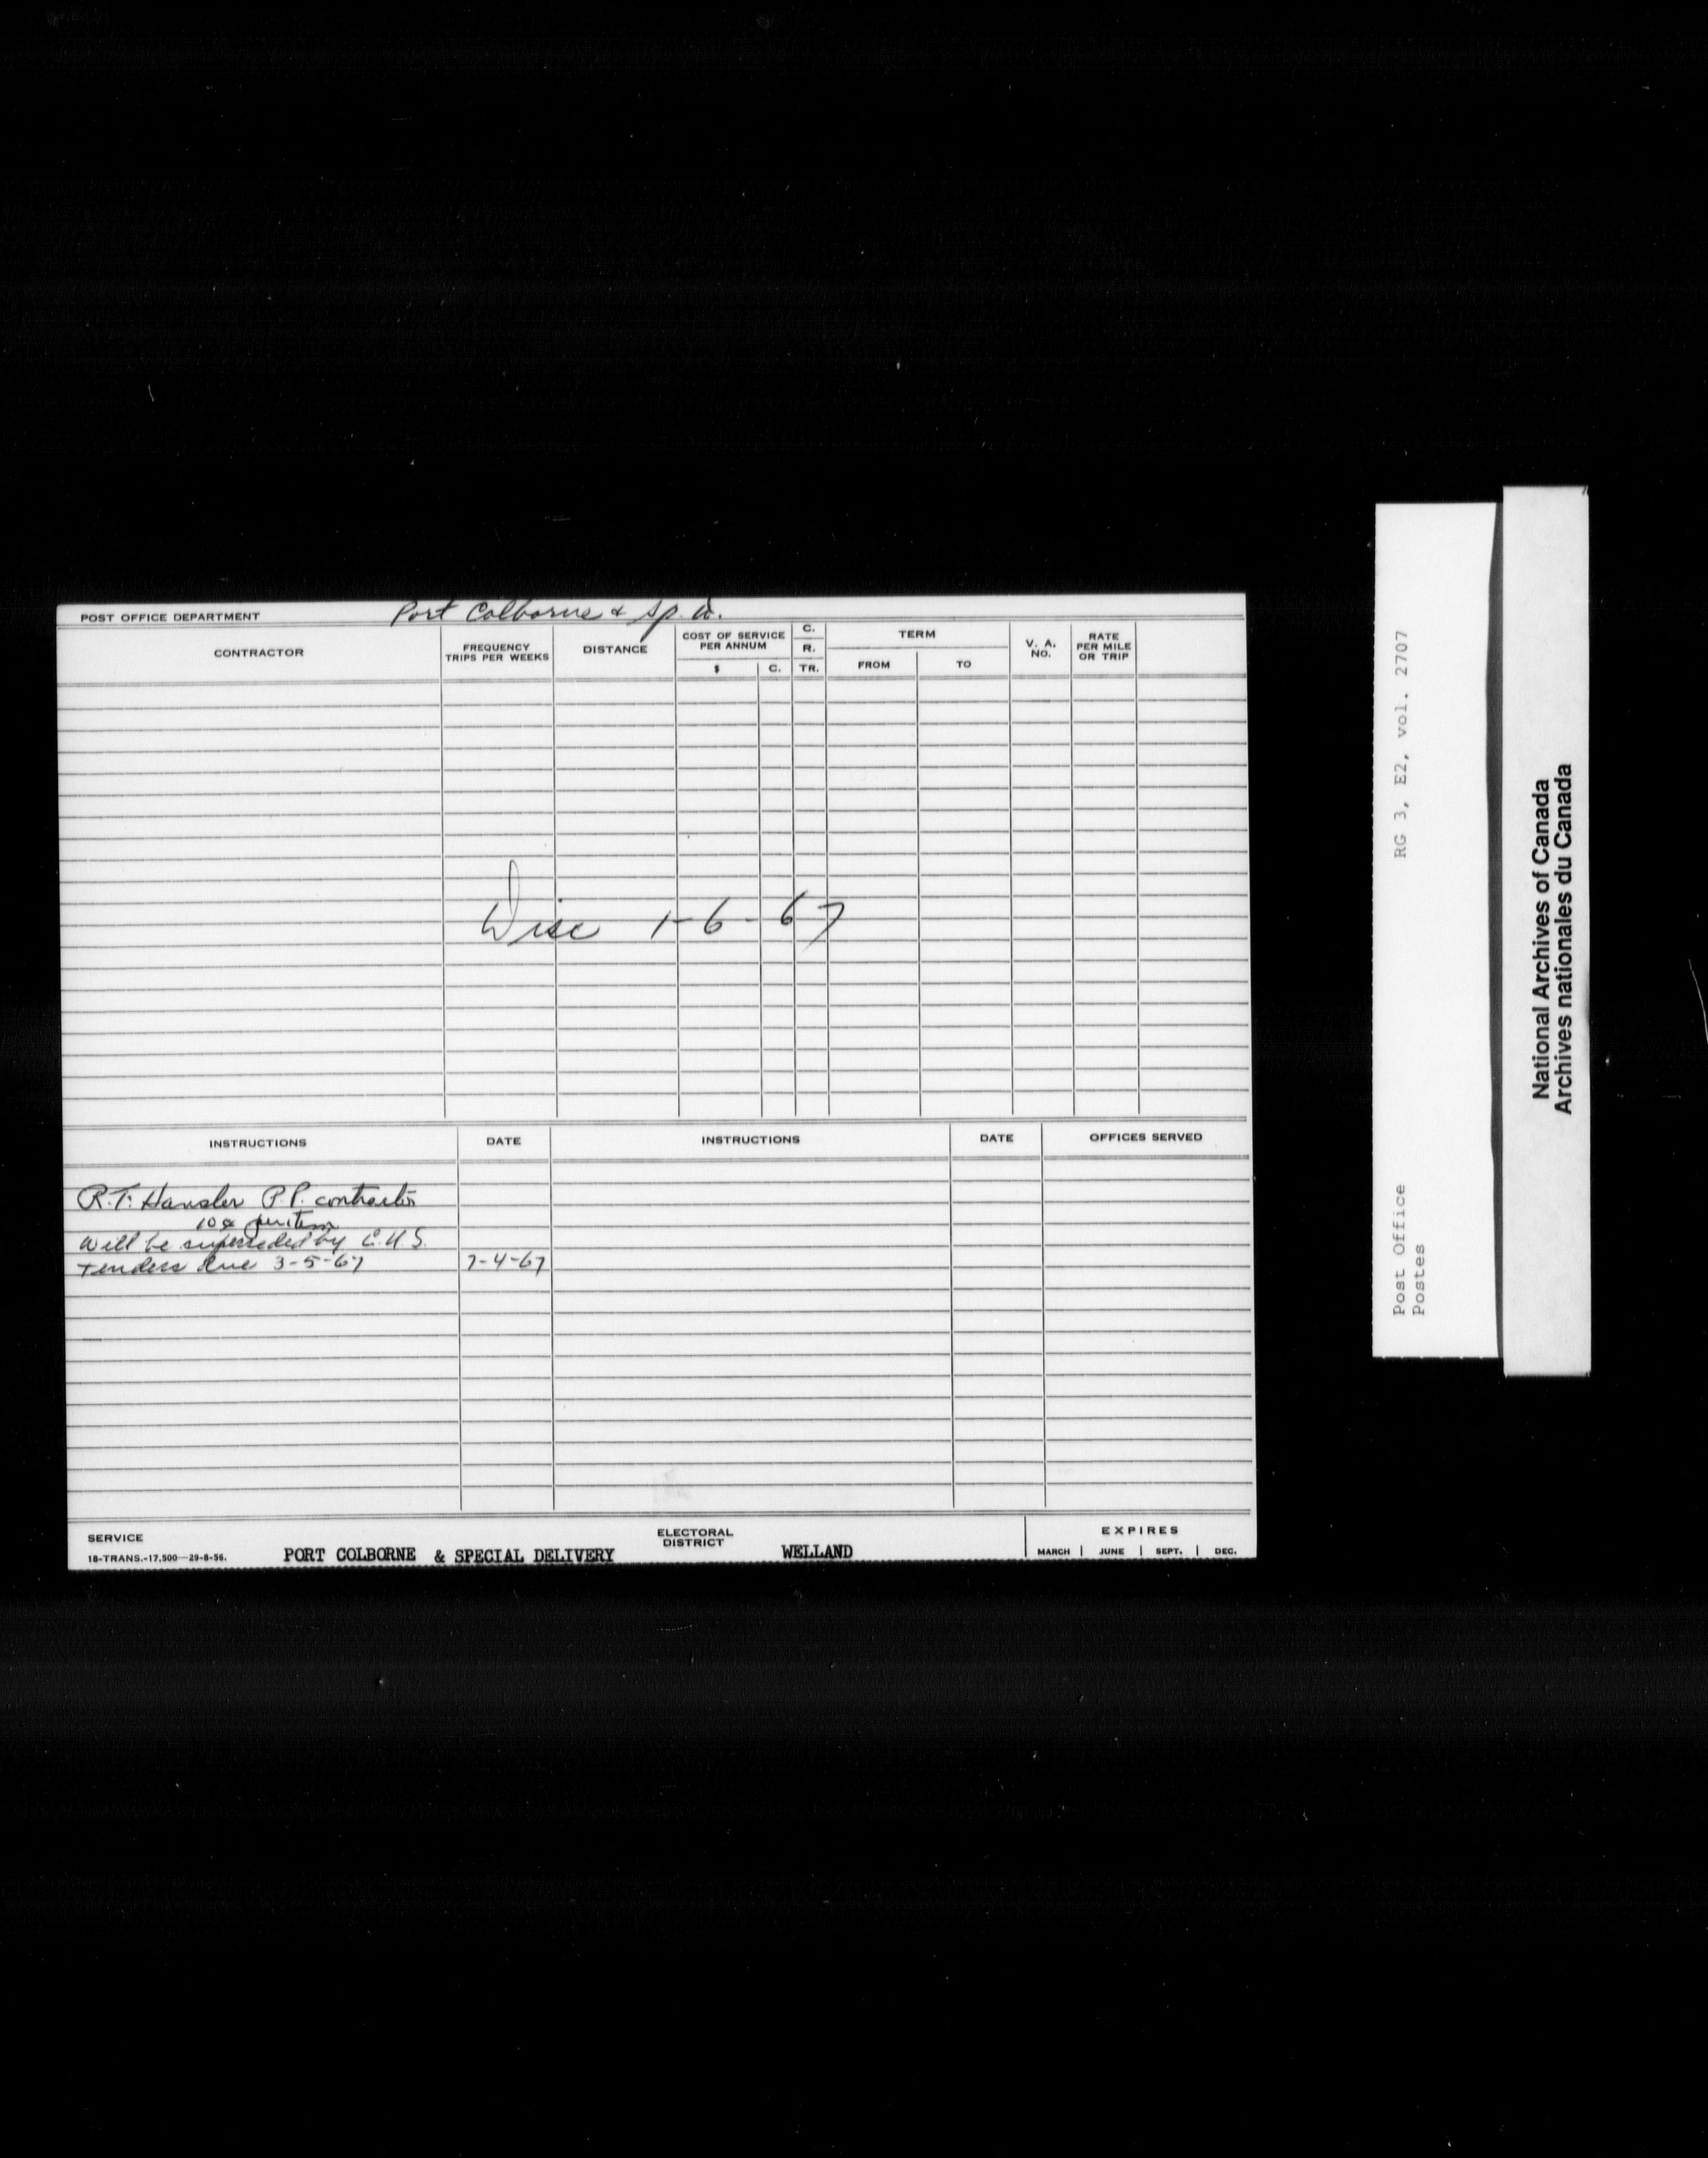 POST OFFICE DEPARTMENT Port Colborne & Sp. D.
CONTRACTOR
FREQUENCY
TRIPS PER WEEKS
DISTANCE
COST OF SERVICE
PER ANNUM
$ C.
C.
R.
TR.
TERM
FROM TO
V. A.
NO.
RATE
PER MILE
OR TRIP
Disc 1-6-67
INSTRUCTIONS DATE INSTRUCTIONS DATE OFFICES SERVED
R.T. Hansler P.P. contractor
10¢ per item
Will be superseded by C.U.S.
Tenders due 3-5-67 7-4-67
SERVICE
18-TRANS.-17,500—29-8-56.
PORT COLBORNE & SPECIAL DELIVERY
ELECTORAL
DISTRICT
WELLAND
EXPIRES
MARCH JUNE SEPT. DEC.
RG 3, E2, vol. 2707
Post Office
Postes
National Archives of Canada
Archives nationales du Canada